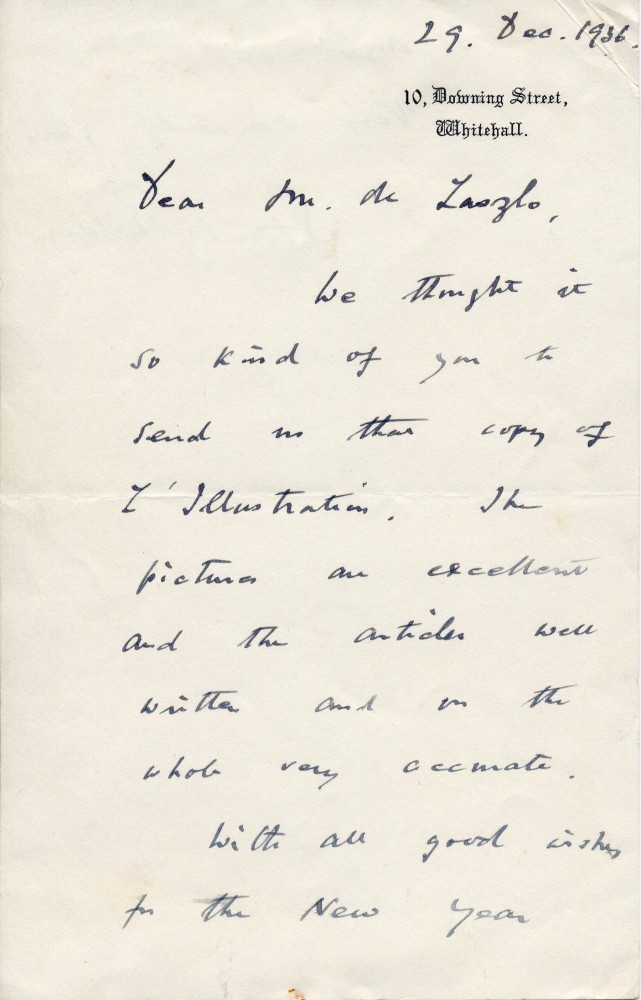 29. Dec. 1936.
10, Downing Street,
Whitehall.
Dear Mr. de Laszlo,
We thought it
so kind of you to
send us that copy of
L'Illustration. The
pictures are excellent
and the articles well
written and on the
whole very accurate.
With all good wishes
for the New Year